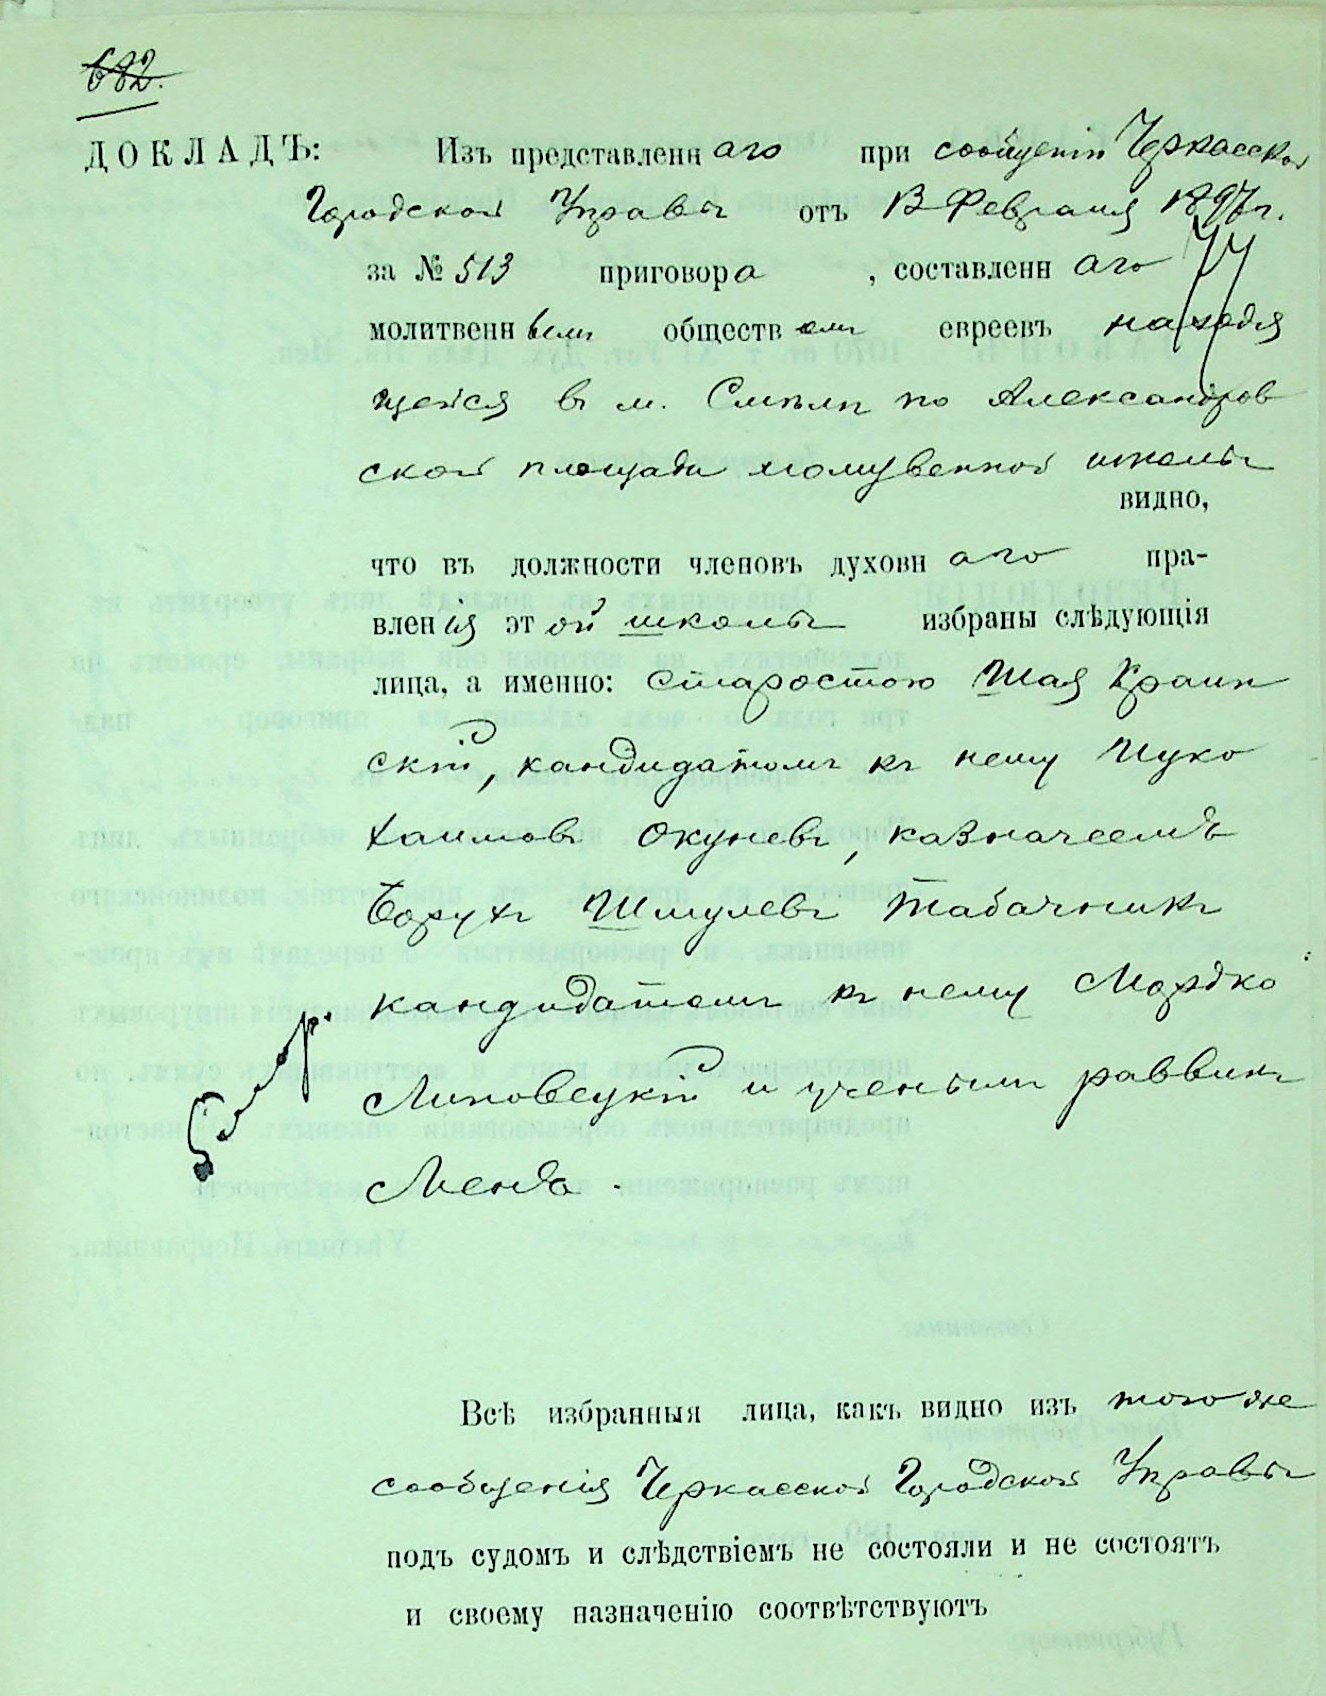 682.
ДОКЛАДЪ: Изъ представленнаго при сообщеніи Черкасской
Городской Управы отъ 13 Февраля 1897 г.
за № 513 приговора, составленнаго
молитвеннымъ обществомъ евреевъ находя
щейся въ м. Смѣлѣ по Александров
ской площади молитвенной школы
видно,
что въ должности членовъ духовнаго пра-
вленія этой школы избраны слѣдующія
лица, а именно: старостою Шая Краин
скій, кандидатомъ къ нему Ицко
Хаимовъ Окуневъ, казначеемъ
Борухъ Шмулевъ Табачникъ
кандидатомъ къ нему Мордко
Липовецкій и ученымъ раввинъ
Менда.
Всѣ избранныя лица, какъ видно изъ того же
сообщенія Черкасской Городской Управы
подъ судомъ и слѣдствіемъ не состояли и не состоятъ
и своему назначенію соотвѣтствуютъ